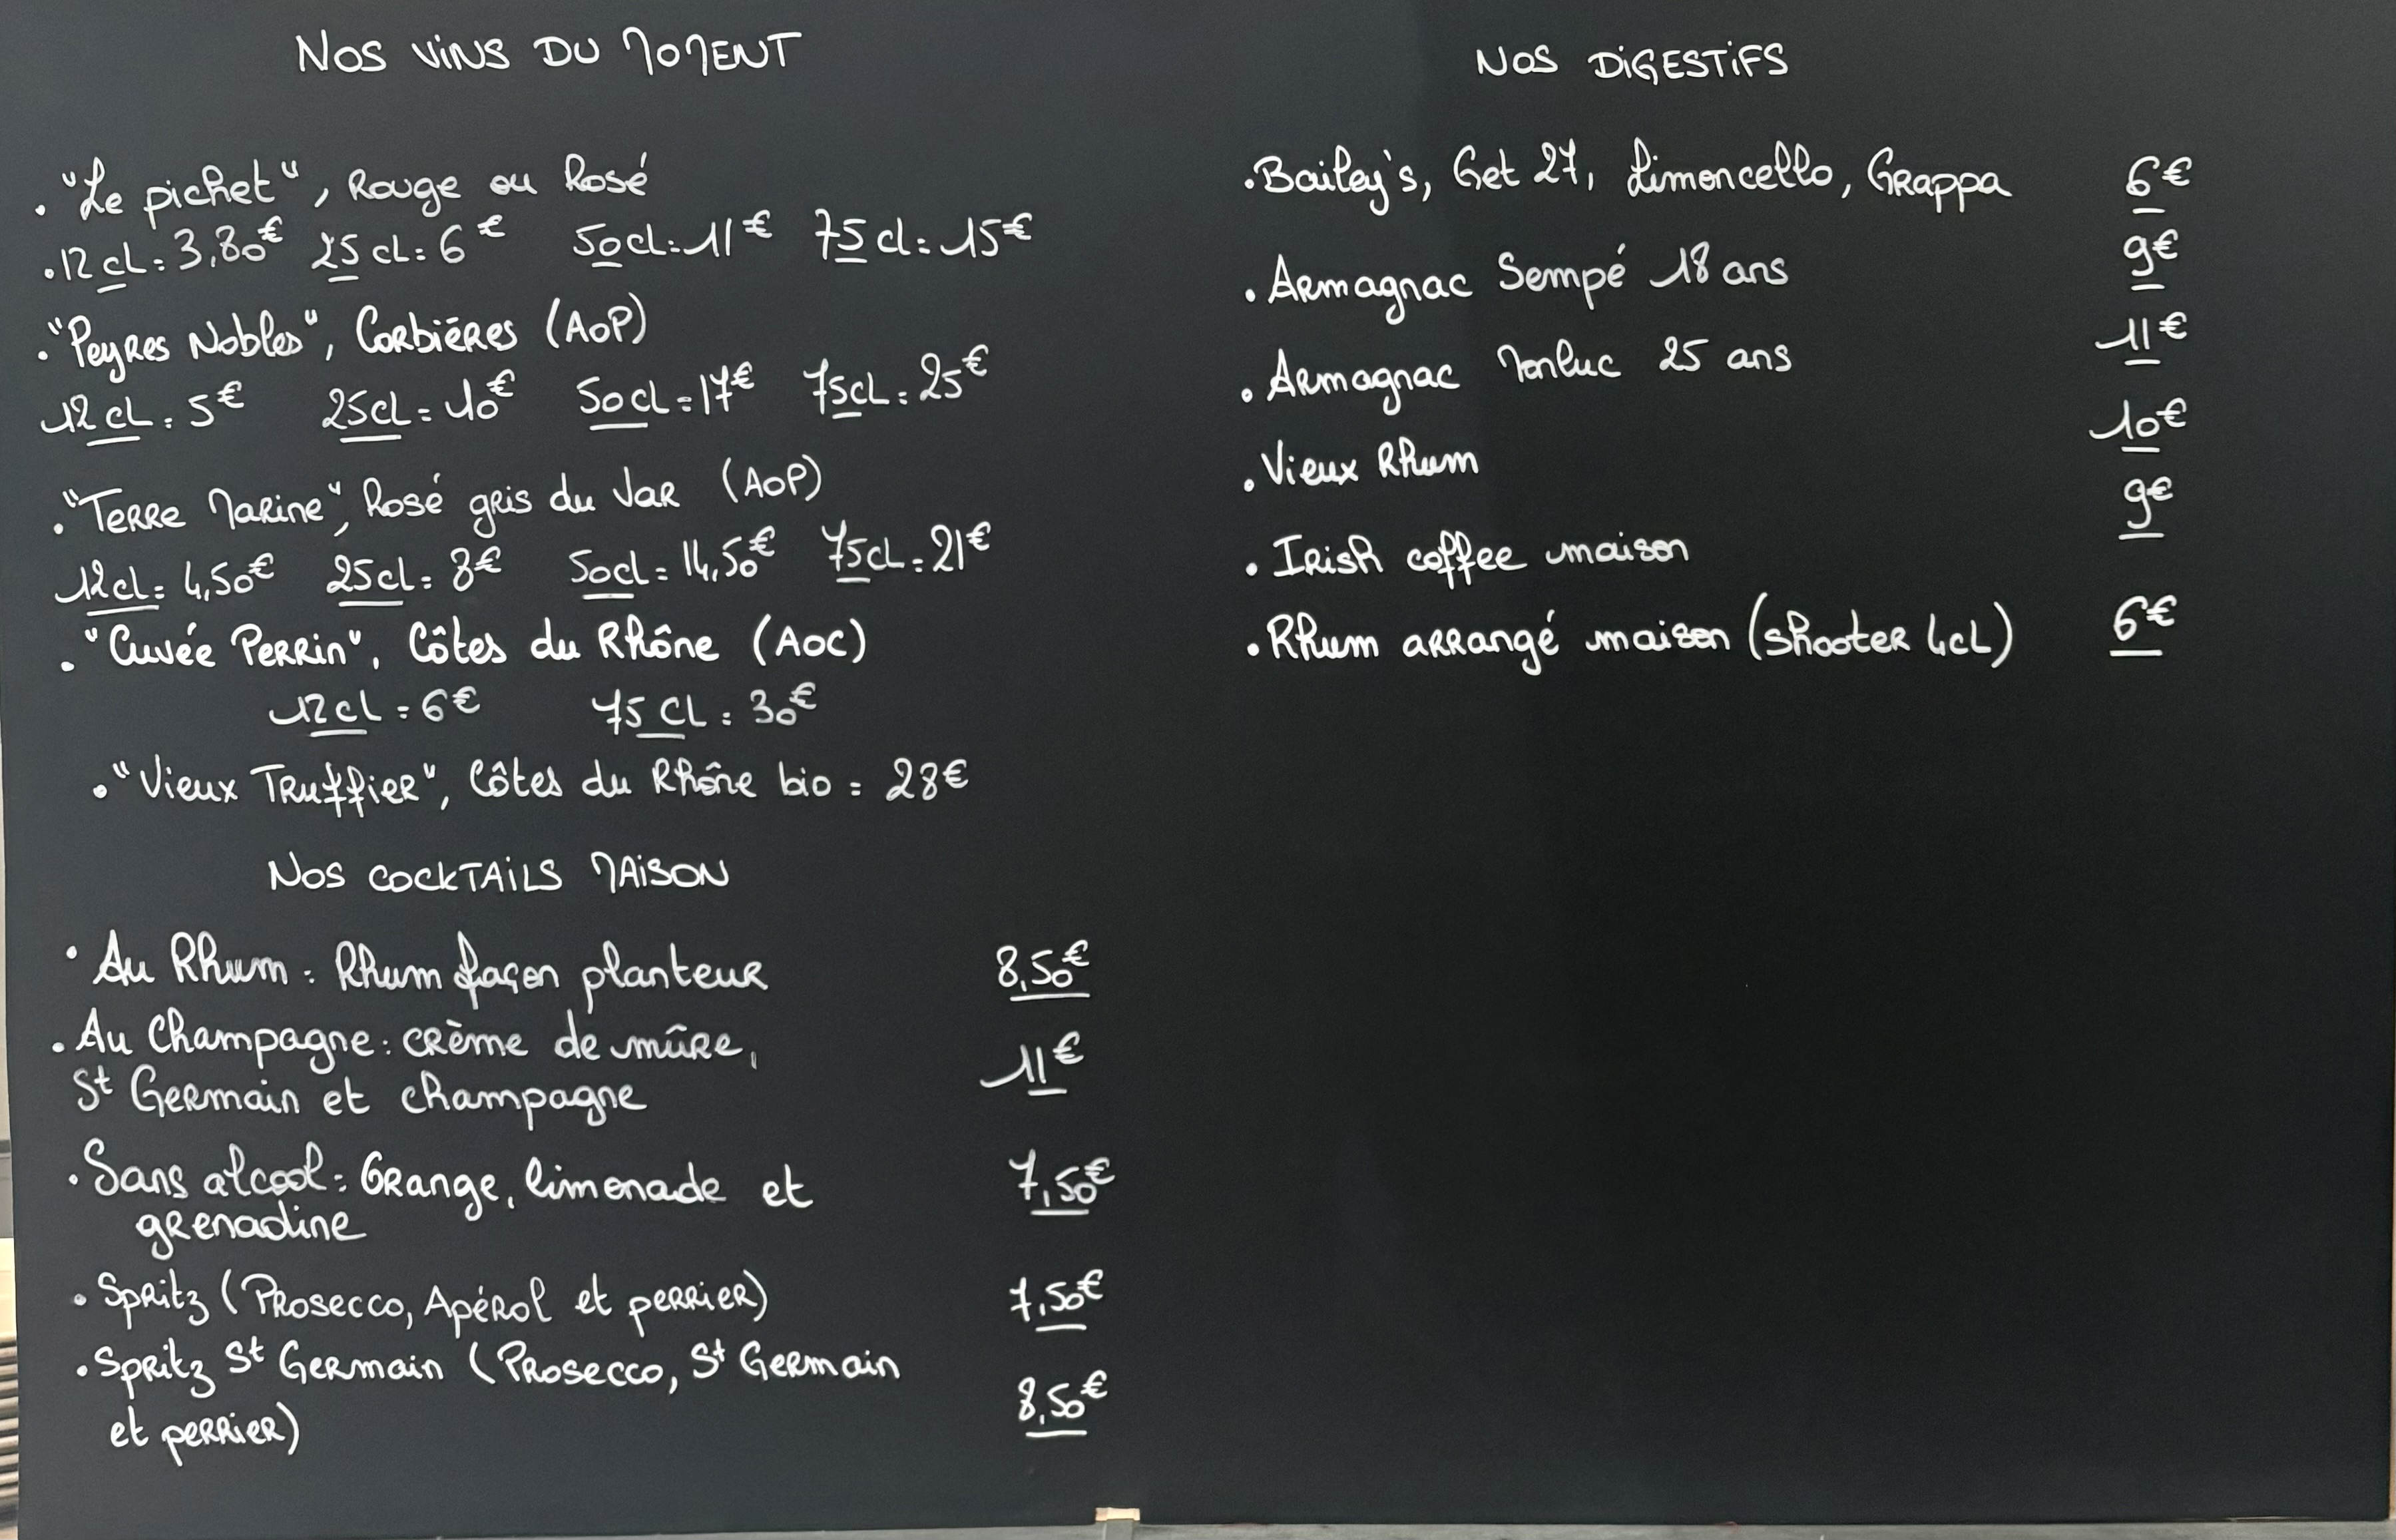 NOS ViNS DU MOMENT
• "Le pichet", Rouge ou Rosé
• 12 cl = 3,80€ 25 cl = 6€ 50 cl = 11€ 75 cl = 15€
• "Peyres Nobles", Corbières (AOP)
12 cl = 5€ 25cl = 10€ 50 cl = 17€ 75cl = 25€
• "Terre Marine", Rosé gris du Var (AOP)
12cl = 4,50€ 25cl = 8€ 50cl = 14,50€ 75cl = 21€
• "Cuvée Perrin", Côtes du Rhône (AOC)
12cl = 6€ 75 CL = 30€
• "Vieux Truffier", Côtes du Rhône bio = 28€
NOS COCKTAiLS MAiSON
• Au Rhum : Rhum façon planteur 8,50€
• Au Champagne : crème de mûre, 11€
St Germain et champagne
• Sans alcool : Orange, limonade et 7,50€
grenadine
• Spritz (Prosecco, Apérol et perrier) 7,50€
• Spritz St Germain (Prosecco, St Germain
et perrier) 8,50€
NOS DiGESTiFS
• Bailey's, Get 27, Limoncello, Grappa 6€
• Armagnac Sempé 18 ans 9€
• Armagnac Monluc 25 ans 11€
• Vieux Rhum 10€
• Irish coffee maison 9€
• Rhum arrangé maison (shooter 4cL) 6€